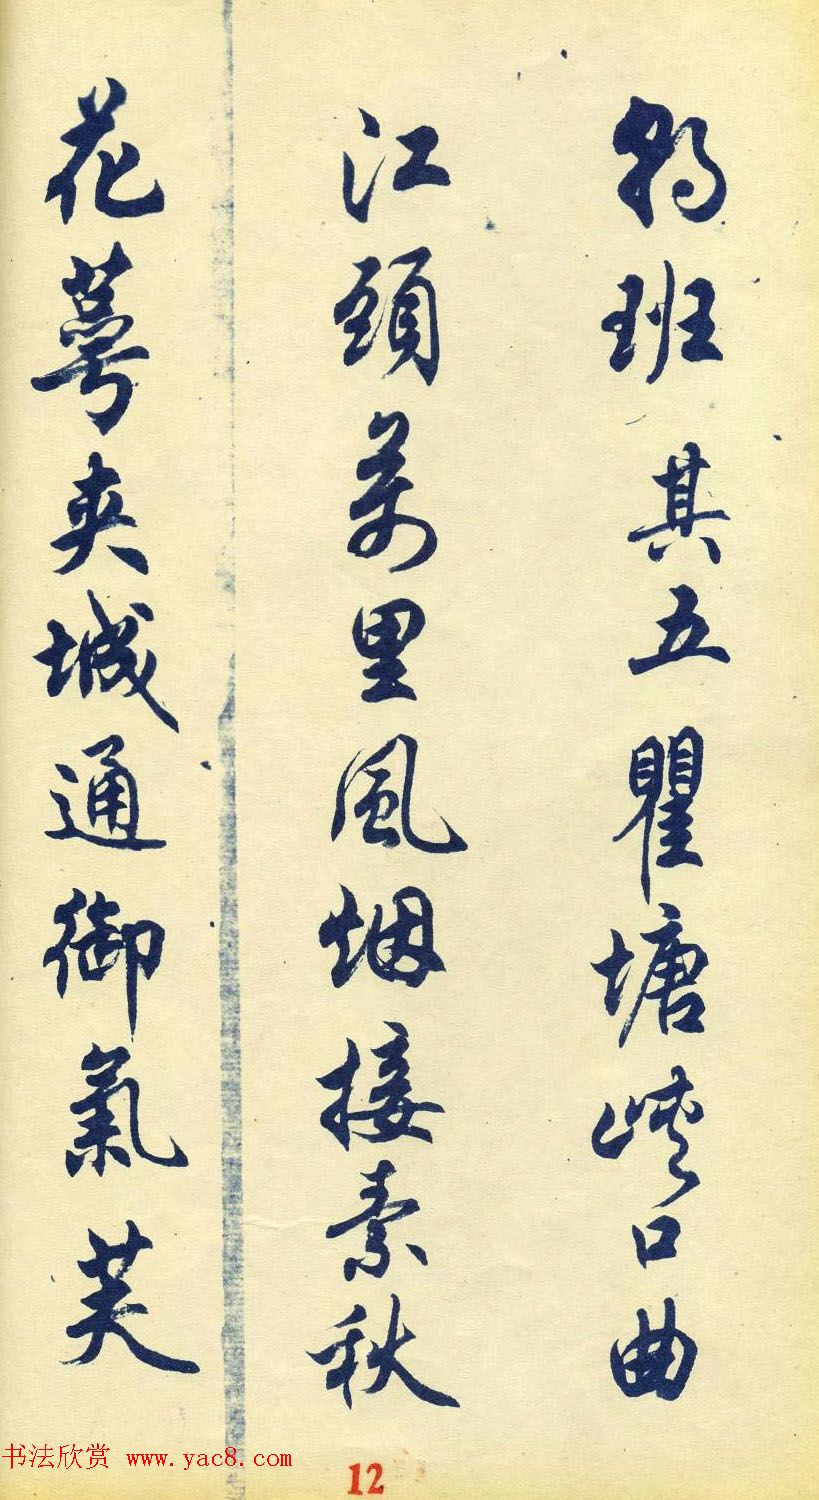 朝班其五瞿塘峽口曲
江頭萬里風烟接素秋
花萼夾城通御氣芙
书法欣赏 www.yac8.com
12